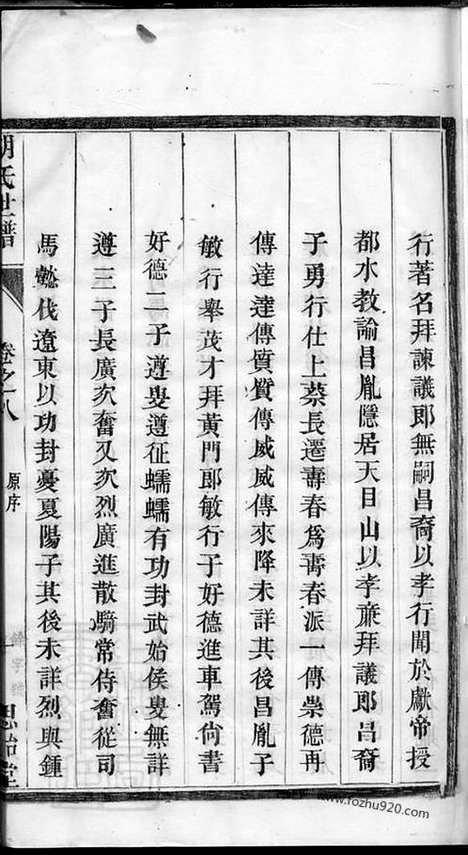 行著名拜諫議郎無嗣昌裔以孝行聞於獻帝授
都水教諭昌胤隱居天目山以孝亷拜議郎昌裔
子勇行仕上蔡長遷壽春爲壽春派一傳崇德再
傳達達傳質質傳威威傳來降未詳其後昌胤子
敏行舉茂才拜黃門郎敏行子好德進車駕尙書
好德二子遵叟遵征蠕蠕有功封武始侯叟無詳
遵三子長廣次奮又次烈廣進散騎常侍奮從司
馬懿伐遼東以功封憂夏陽子其後未詳烈與鍾
胡氏世譜
卷之八
原序
一
思詒堂
www.fozhu920.com